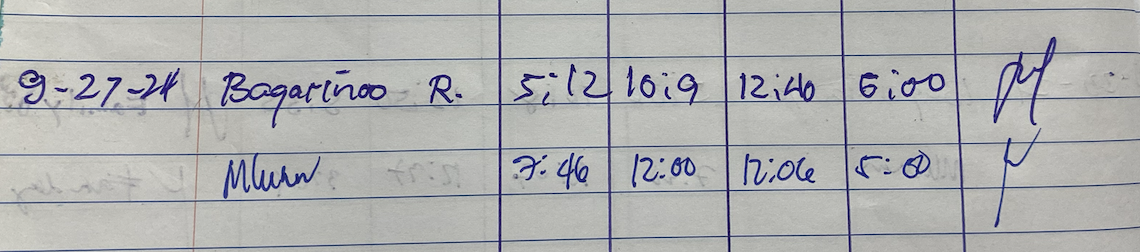 9-27-24 Bagariñoo R. 5:12 10:9 12:40 6:00
7:46 12:00 12:06 5:00